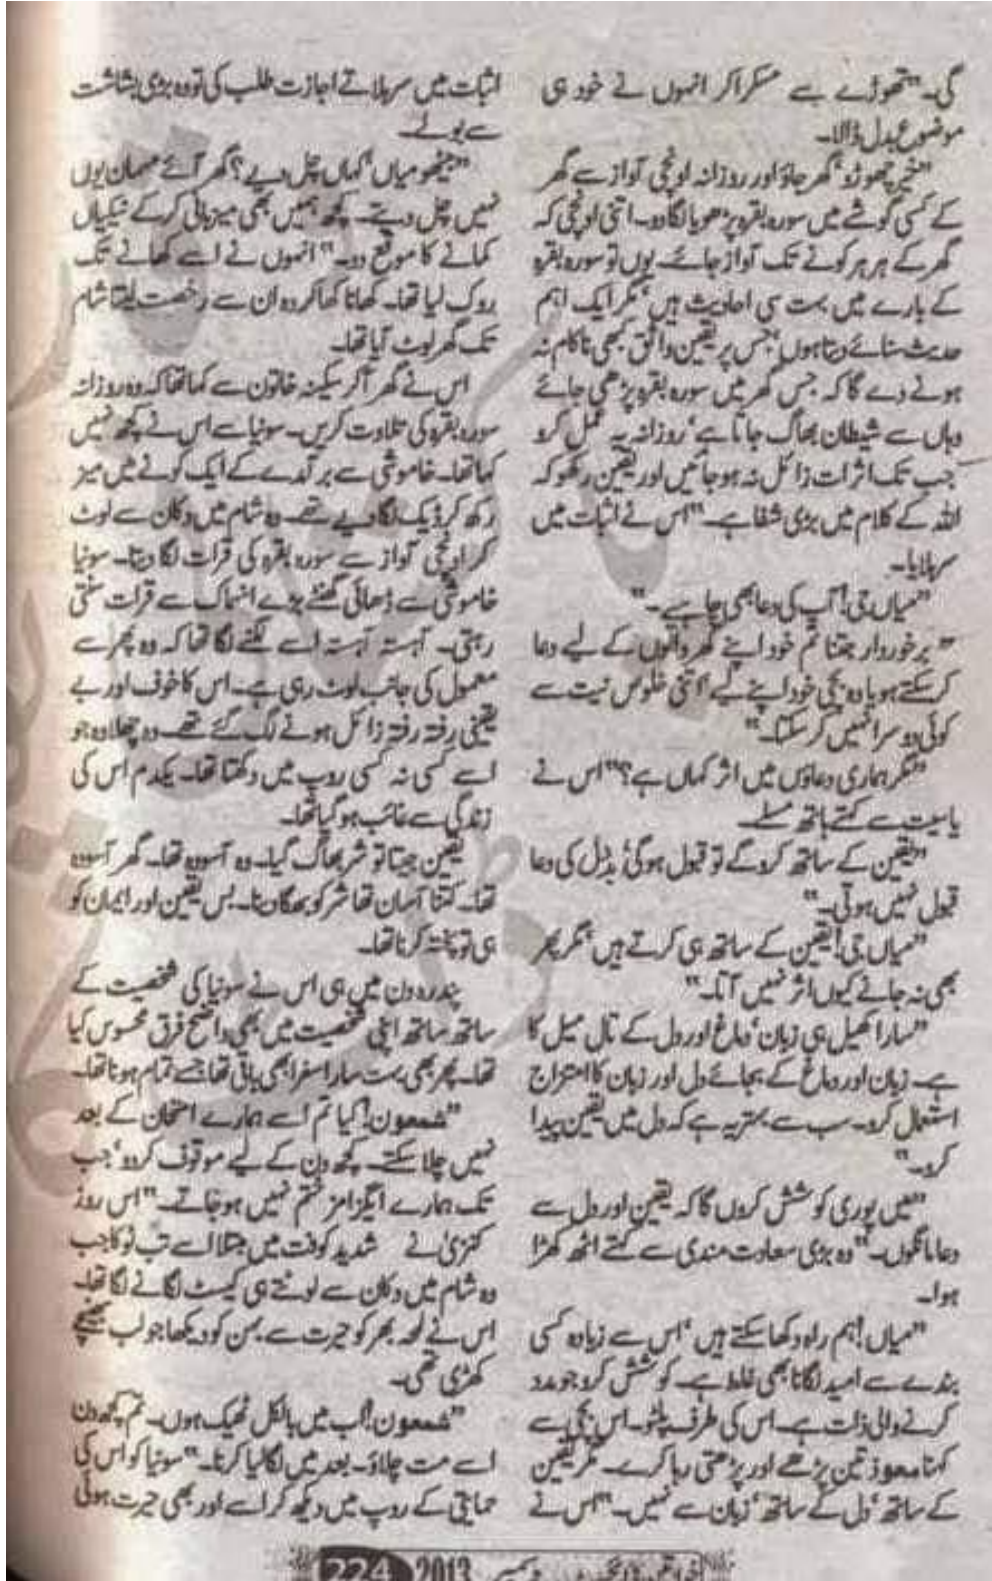 گی۔" تھوڑے سے مسکرا کر انہوں نے خود ہی
موضوع بدل ڈالا۔
"خیر چھوڑو' گھر جاؤ اور روزانہ اونچی آواز سے گھر
کے کسی گوشے میں سورہ بقرہ پڑھو یا لگا دو۔ اتنی اونچی کہ
گھر کے ہر ہر کونے تک آواز جائے۔ یوں تو سورہ بقرہ
کے بارے میں بہت سی احادیث ہیں' مگر ایک اہم
حدیث سنائے دیتا ہوں' جس پر یقین واثق کبھی ناکام نہ
ہونے دے گا کہ جس گھر میں سورہ بقرہ پڑھی جائے
وہاں سے شیطان بھاگ جاتا ہے' روزانہ یہ عمل کرو
جب تک اثرات زائل نہ ہو جائیں اور یقین رکھو کہ
اللہ کے کلام میں بڑی شفا ہے۔" اس نے اثبات میں
سر ہلایا۔
"میاں جی! آپ کی دعا بھی چاہیے۔"
"برخوردار جتنا تم خود اپنے گھر والوں کے لیے دعا
کر سکتے ہو یا وہ بچی خود اپنے لیے' اتنی خلوص نیت سے
کوئی دوسرا نہیں کر سکتا۔"
"مگر ہماری دعاؤں میں اثر کہاں ہے؟" اس نے
یاسیت سے کہتے ہاتھ مسلے۔
"یقین کے ساتھ کرو گے تو قبول ہوگی' بددلی کی دعا
قبول نہیں ہوتی۔"
"میاں جی! یقین کے ساتھ ہی کرتے ہیں' مگر پھر
بھی نہ جانے کیوں اثر نہیں آتا۔"
"سارا کھیل ہی زبان' دماغ اور دل کے تال میل کا
ہے۔ زبان اور دماغ کے بجائے دل اور زبان کا امتزاج
استعمال کرو۔ سب سے بہتر یہ ہے کہ دل میں یقین پیدا
کرو۔"
"میں پوری کوشش کروں گا کہ یقین اور دل سے
دعا مانگوں۔" وہ بڑی سعادت مندی سے کہتے اٹھ کھڑا
ہوا۔
"میاں! ہم راہ دکھا سکتے ہیں' اس سے زیادہ کسی
بندے سے امید لگانا بھی غلط ہے۔ کوشش کرو جو مدد
کرنے والی ذات ہے۔ اس کی طرف پلٹو۔ اس بچی سے
کہنا معوذتین پڑھے اور پڑھتی رہا کرے۔ مگر یقین
کے ساتھ' دل کے ساتھ' زبان سے نہیں۔" اس نے
اثبات میں سر ہلاتے اجازت طلب کی تو وہ بڑی بشاشت
سے بولے۔
"بیٹھو میاں' کہاں چل دیے؟ گھر آئے مہمان یوں
نہیں چل دیتے۔ کچھ ہمیں بھی میزبانی کر کے نیکیاں
کمانے کا موقع دو۔" انہوں نے اسے کھانے تک
روک لیا تھا۔ کھانا کھا کر وہ ان سے رخصت لیتا شام
تک گھر لوٹ آیا تھا۔
اس نے گھر آ کر سکینہ خاتون سے کہا تھا کہ وہ روزانہ
سورہ بقرہ کی تلاوت کریں۔ سونیا سے اس نے کچھ نہیں
کہا تھا۔ خاموشی سے برآمدے کے ایک کونے میں میز
رکھ کر ڈیک لگا دیے تھے۔ وہ شام میں دکان سے لوٹ
کر اونچی آواز سے سورہ بقرہ کی قرات لگا دیتا۔ سونیا
خاموشی سے ڈھائی گھنٹے بڑے انہماک سے قرات سنتی
رہتی۔ آہستہ آہستہ اسے لگنے لگا تھا کہ وہ پھر سے
معمول کی جانب لوٹ رہی ہے۔ اس کا خوف اور بے
یقینی رفتہ رفتہ زائل ہونے لگ گئے تھے۔ وہ چھلاوہ جو
اسے کسی نہ کسی روپ میں دکھتا تھا۔ یکدم اس کی
زندگی سے غائب ہو گیا تھا۔
یقین جیتا تو شر بھاگ گیا۔ وہ آسودہ تھا۔ گھر آسودہ
تھا۔ کتنا آسان تھا شر کو بھگانا۔ بس یقین اور ایمان کو
ہی تو پختہ کرنا تھا۔
پندرہ دن میں ہی اس نے سونیا کی شخصیت کے
ساتھ ساتھ اپنی شخصیت میں بھی واضح فرق محسوس کیا
تھا۔ پھر بھی بہت سارا سفر ابھی باقی تھا جسے تمام ہونا تھا۔
"شمعون! کیا تم اسے ہمارے امتحان کے بعد
نہیں چلا سکتے۔ کچھ دن کے لیے موقوف کر دو' جب
تک ہمارے ایگزامز ختم نہیں ہو جاتے۔" اس روز
کنزیٰ نے شدید کوفت میں مبتلا اسے تب ٹوکا جب
وہ شام میں دکان سے لوٹتے ہی کیسٹ لگانے لگا تھا۔
اس نے لمحہ بھر کو حیرت سے بہن کو دیکھا جو لب بھینچے
کھڑی تھی۔
"شمعون! اب میں بالکل ٹھیک ہوں۔ تم کچھ دن
اسے مت چلاؤ۔ بعد میں لگا لیا کرنا۔" سونیا کو اس کی
حمایتی کے روپ میں دیکھ کر اسے اور بھی حیرت ہوئی
خواتین ڈائجسٹ دسمبر 2013 224